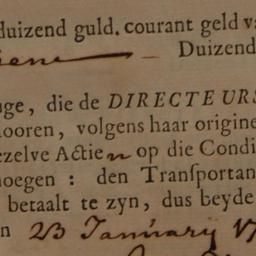 duizend guld. courant geld v
Duizend
ge, die de DIRECTEURS
ooren, volgens haar origine
ezelve Actien op die Condi
oegen : den Tranſportan
betaalt te zyn, dus beyde
n 23 January 17